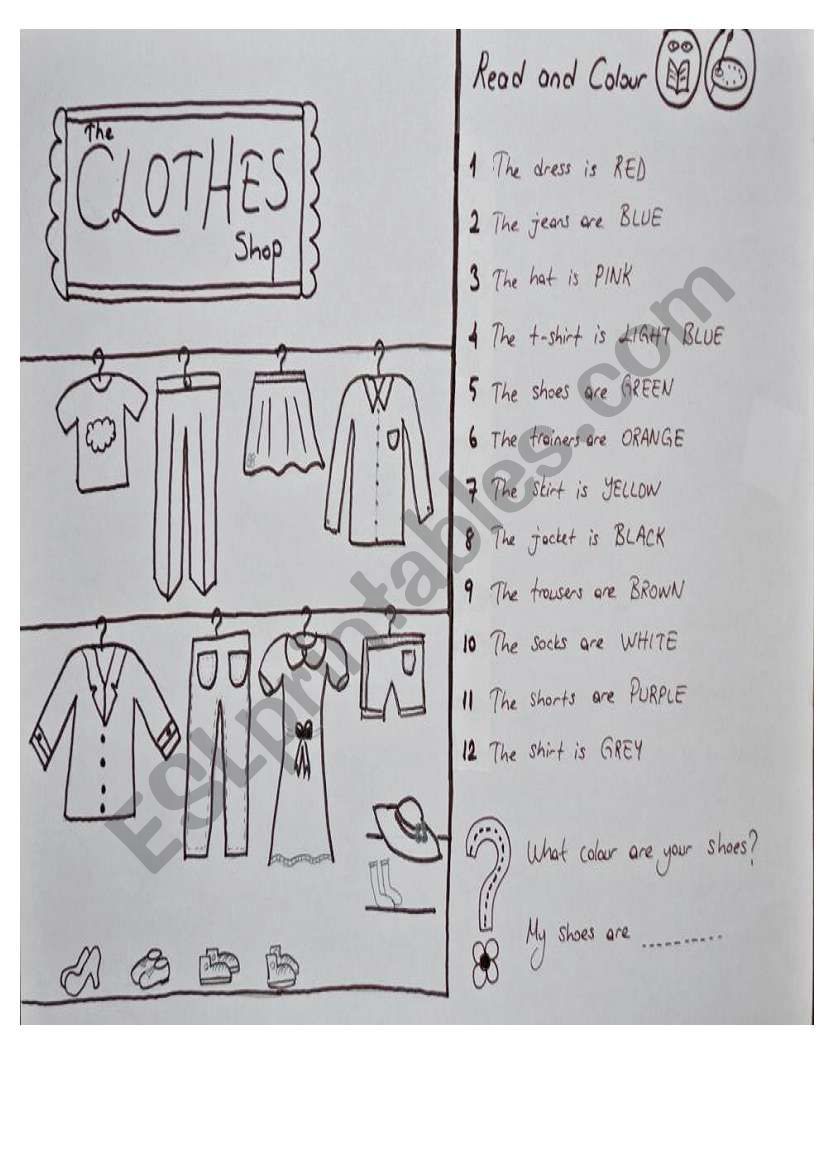 The
CLOTHES
Shop
Read and Colour
1 The dress is RED
2 The jeans are BLUE
3 The hat is PINK
4 The t-shirt is LIGHT BLUE
5 The shoes are GREEN
6 The trainers are ORANGE
7 The skirt is YELLOW
8 The jacket is BLACK
9 The trousers are BROWN
10 The socks are WHITE
11 The shorts are PURPLE
12 The shirt is GREY
? What colour are your shoes?
My shoes are ..........
ESLprintables.com